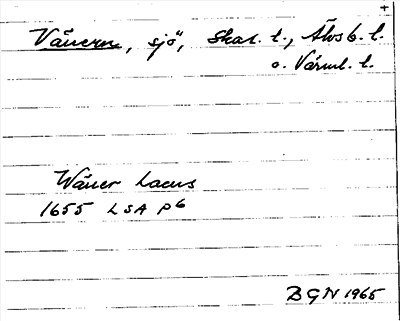 +
Vänern, sjö, Skar. l., Älvsb. l.
o. Värml. l.
Wäner Lacus
1655 LSA p6
BGN 1965